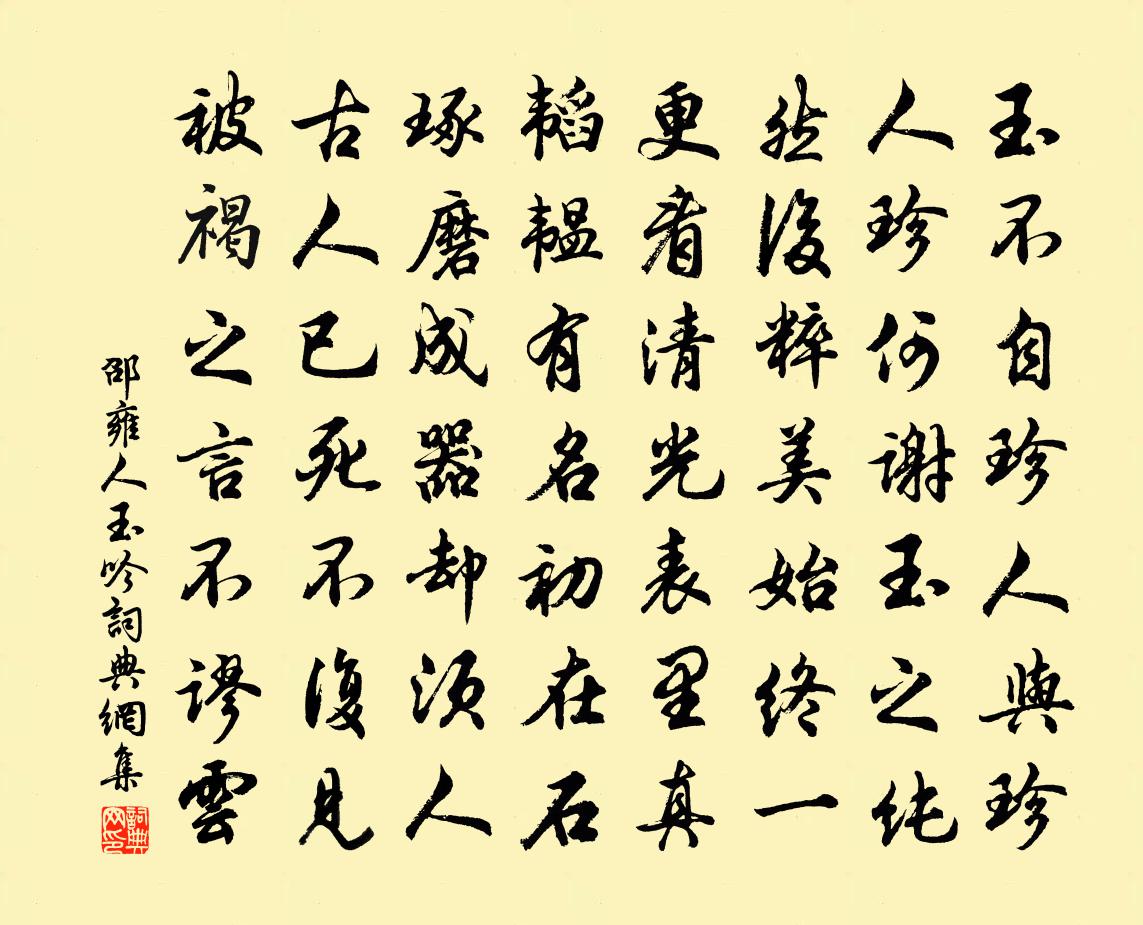 玉不自珍人與珍
人珍何謝玉之纯
然後粹美始终一
更看清光表里真
韬韫有名初在石
琢磨成器却须人
古人已死不復見
被褐之言不謬雲
邵雍人玉吟詞典網集
詞典网印